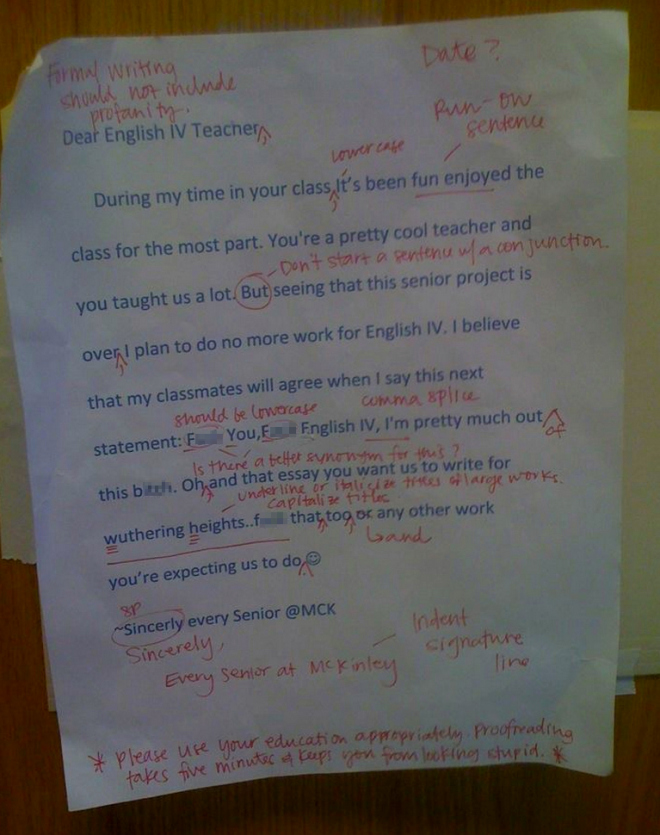 Formal Writing
should not include
profanity.
Date?
Run-on
sentence
Dear English IV Teacher
lowercase
During my time in your class, It's been fun enjoyed the
class for the most part. You're a pretty cool teacher and
Don't start a sentence w/ a conjunction.
you taught us a lot. But seeing that this senior project is
over I plan to do no more work for English IV. I believe
that my classmates will agree when I say this next
should be lowercase
comma splice
statement: F You, F English IV, I'm pretty much out
of
Is there a better synonym for this?
this b. Oh and that essay you want us to write for
underline or italicize titles of large works.
capitalize titles
wuthering heights..f that too or any other work
and
you're expecting us to do ☺
sp
~Sincerly every Senior @MCK
Sincerely,
Every Senior at McKinley
Indent
signature
line
* Please use your education appropriately. Proofreading
takes five minutes & keeps you from looking stupid. *